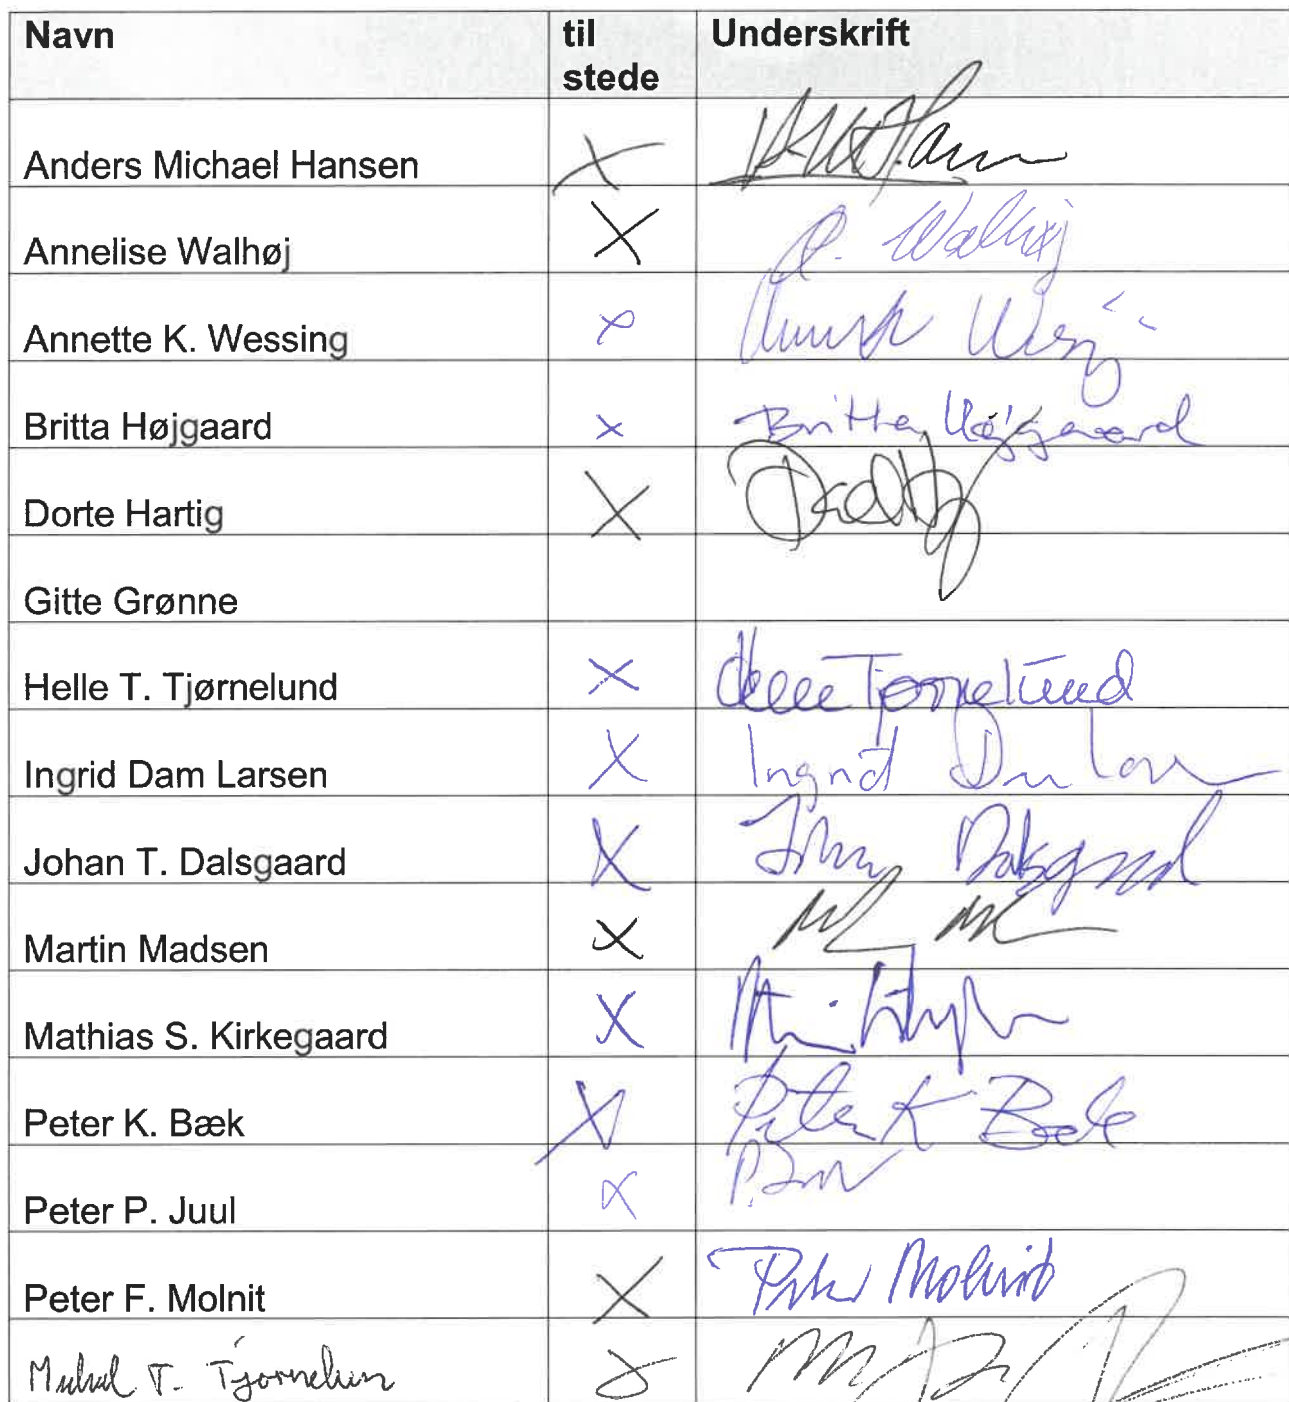 Navn til stede Underskrift
Anders Michael Hansen X
Annelise Walhøj X A. Walhøj
Annette K. Wessing X
Britta Højgaard X Britta Højgaard
Dorte Hartig X
Gitte Grønne
Helle T. Tjørnelund X Helle Tjørnelund
Ingrid Dam Larsen X Ingrid Dam Larsen
Johan T. Dalsgaard X Johan Dalsgaard
Martin Madsen X
Mathias S. Kirkegaard X
Peter K. Bæk X Peter K Bæk
Peter P. Juul X
Peter F. Molnit X Peter Molnit
T. X